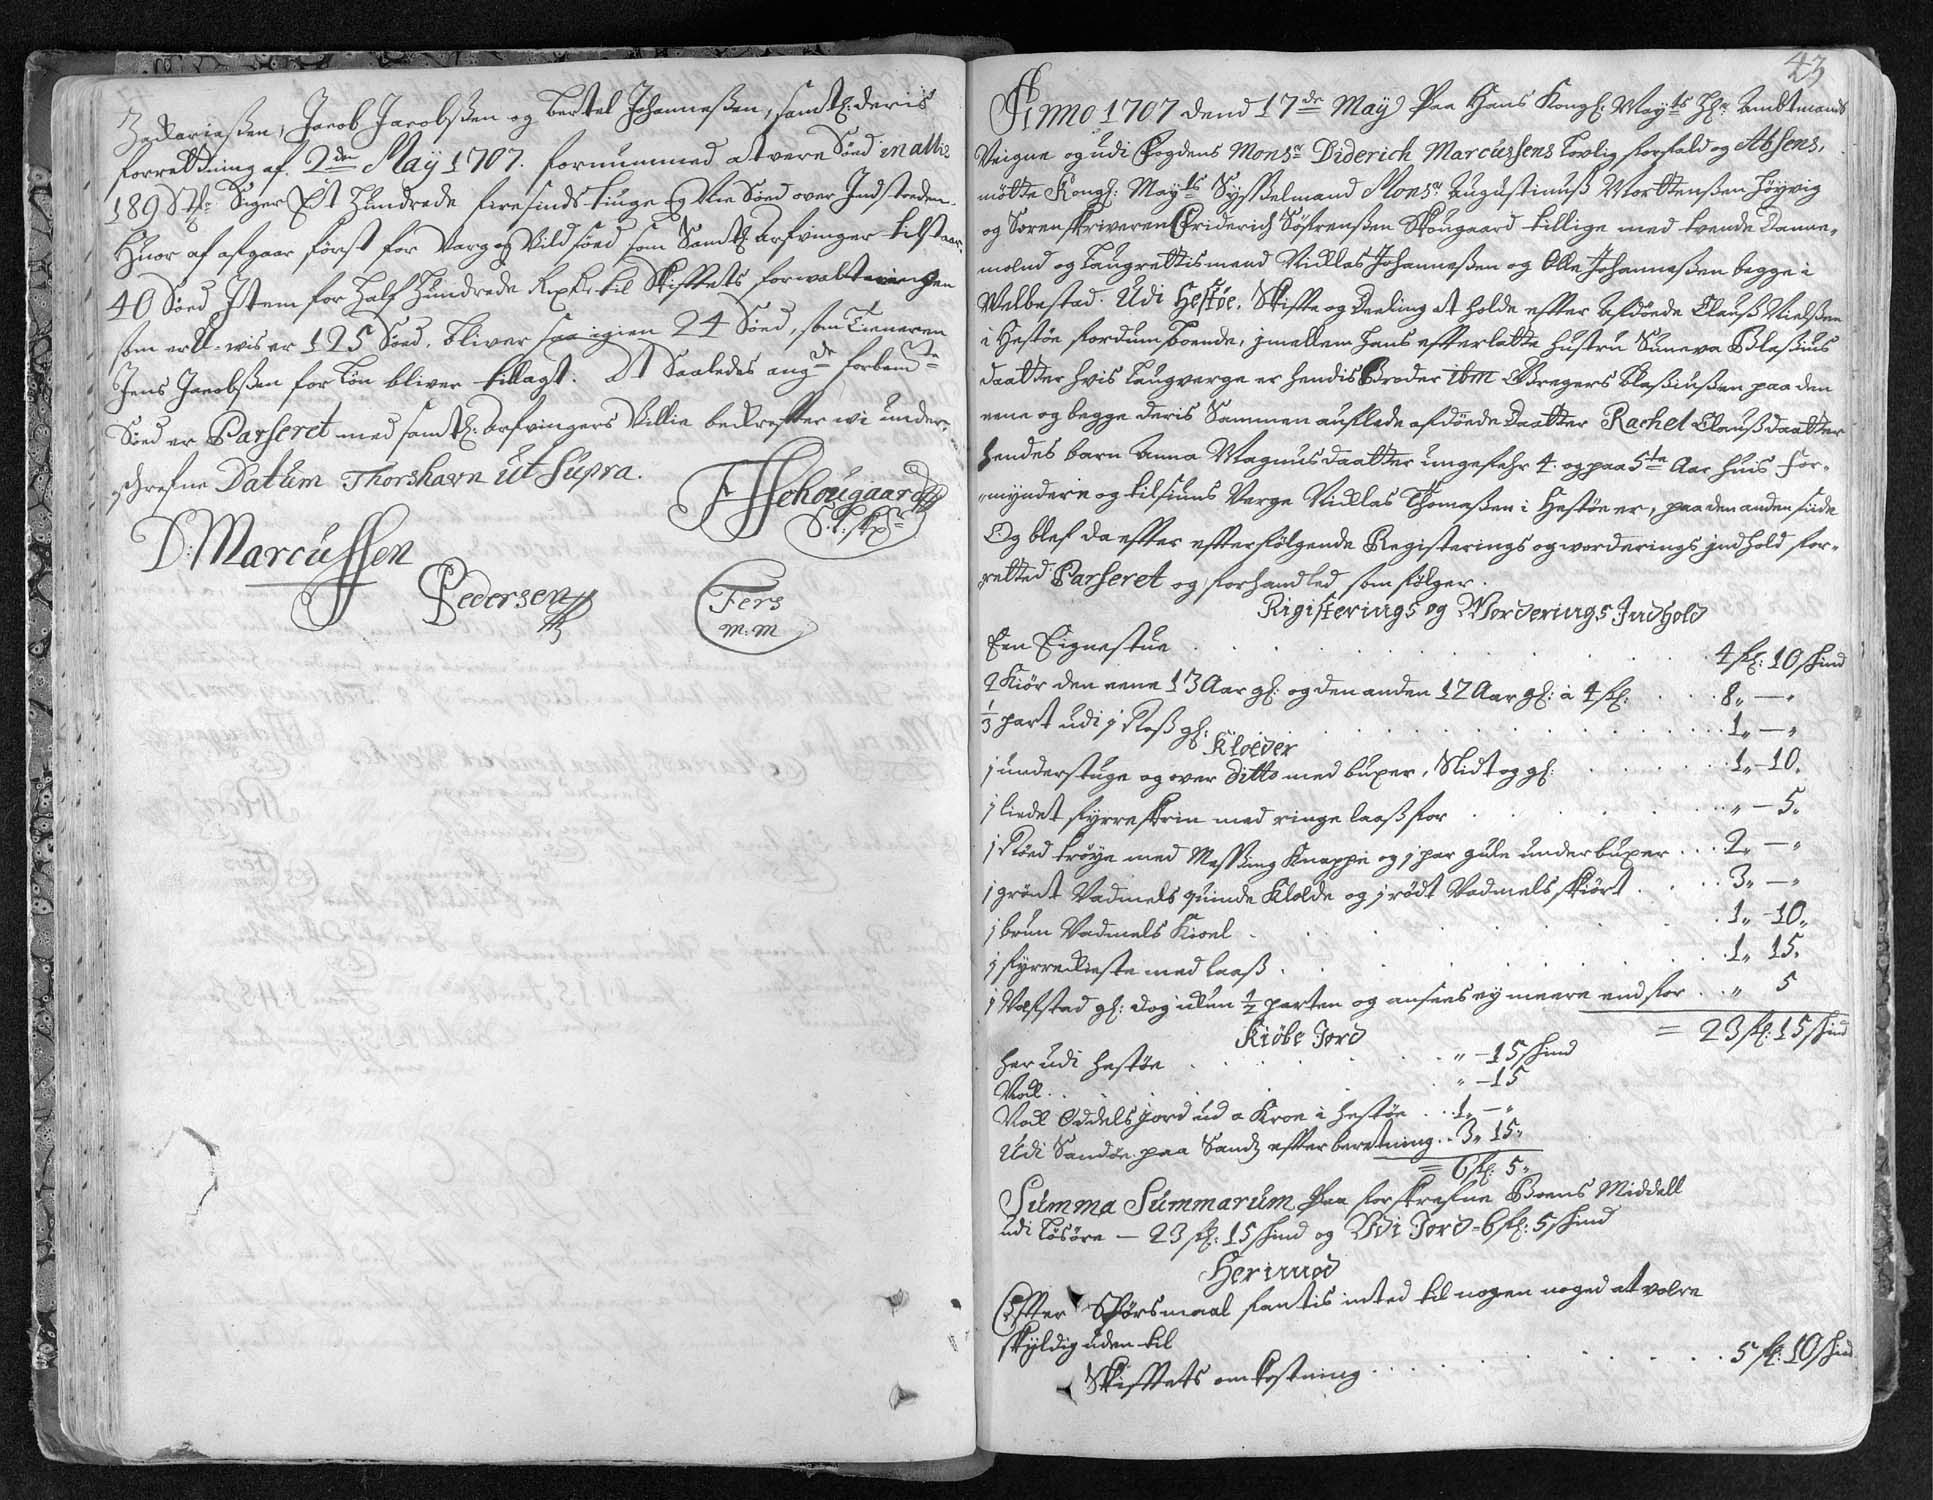 Zachariaßen, Jacob Jacobßen og Bertel Johanneßen, samtl: deris
forretning af 2den Maÿ 1707. fornummed at vere Søed in alles
189 St: Siger Et Hundrede firesinds tiuge og Nie Søed over Indstæden.
Huor af afgaar først for Varg og Vild søed som Samtl: Arfvinger tilstaar
40 Søed Item for Half Hundrede til Skifftets forwaltninngen
som er 125 Søed. bliver saa igien 24 Søed, som Tieneren
Jens Jacobßen for Løn bliver tillagt. At Saaledes angde forbemte
Søed er Parseret med samtl: arfvingers Villie bekrefter wi under-
schrefne Datum Thorshavn ut Supra.
FSSchougaard
S: Skr
D: Marcussen
Pedersen
Fers
m: m
43
Anno 1707 dend 17de Maÿ Paa Hans Kongl: Mayts Hr: Ambtmands
Veigne og udi Fogdens Monsr Diderich Marcussens Lovlig forfald og Absens,
møtte Kongl: Mayts Sysselmand Monsr Augustinuß Morttenßen Høyvig
og Sorenskriveren Friderich Søfrenßen Skougaard tillige med tvende Danne-
mend og Laugrettismend Nicklas Johanneßen og Olle Johanneßen begge i
Welbestad. Udi Hestøe. Skiffte og Deeling at holde effter Afdøede Clauß Nielßen
i Hestøe fordum boende, imellem hans efterlatte hustru Suneva Blasius
daatter hvis Laugverge er hendis Broder ibm Gregers Blaßiußen paa den
eene og begge deris Sammen auflede afdøede Daatter Rachel Claußdaatter
hendes barn Anna Magnusdaatter ungefehr 4. og paa 5te Aar huis For-
mÿndere og tilsiuns Verge Nicklas Thomaßen i Hestøe er, paa den anden siide
Og blef da effter effterfølgende Registerings og worderings indhold for-
retted Parseret og forhandled som følger.
Rigisterings og Worderings Indhold
Een Eignestue . . . 4 fl: 10 skind
2 Kiør den eene 13 Aar gl: og den anden 12 Aar gl: à 4 fl: . . . 8„ — „
1/3 part udi j Røß gl: . . . 1„ — „
Kloeder
j understuge og over ditto med buxer, Slidt og gl: . . . 1„ 10„
j lidet fyrreskrin med ringe laaß for . . . „ — 5„
j Røed trøye med Messing Knappe og j par gule underbuxer . . . 2„ — „
j grønt Vadmels quinde Klæde og j rødt Vadmels skiørt . . . 3„ — „
j brun Vadmels Kioel . . . 1„ 10„
j fyrrekieste med laaß . . . 1„ 15„
j Væfstad gl: dog ickun 1/2 parten og ansees ey meere end for . . . „ 5
= 23 fl: 15 skind
Kiøbe Jord
Her udi Hestøe . . . „ — 15 skind
Noch . . . „ — 15
Noch Oddels jord ud a Kroe i Hestøe . . . 1„ — „
Udi Sandøe paa Sand efter beretning . . 3„ 15„
= 6 fl: 5„
Summa Summarum Paa forskrefne Boens Middell
udi Løsøre — 23 fl: 15 skind og Udi Jord = 6 fl: 5 skind
Herimod
Effter Spørsmaal fantis inted til nogen noged at være
skyldig uden til
Skifftets omkostning . . . 5 fl: 10 skind